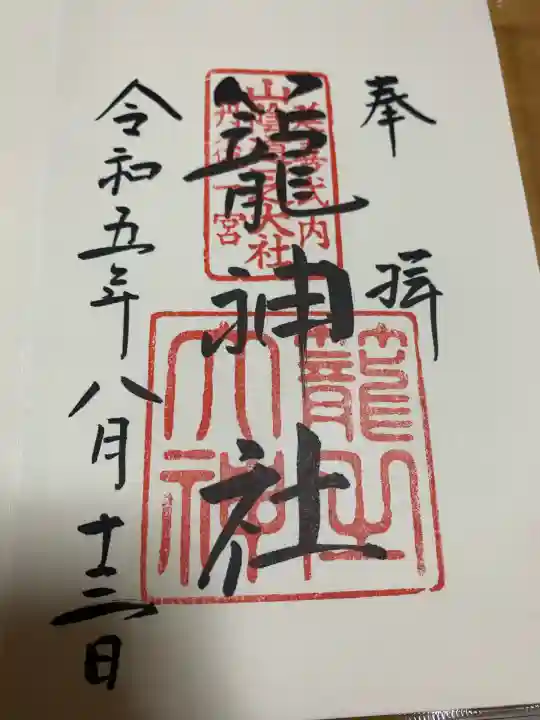 奉拝
籠神社
延喜式内
山陰道一之大社
丹後一宮
籠之大神
令和五年八月十三日